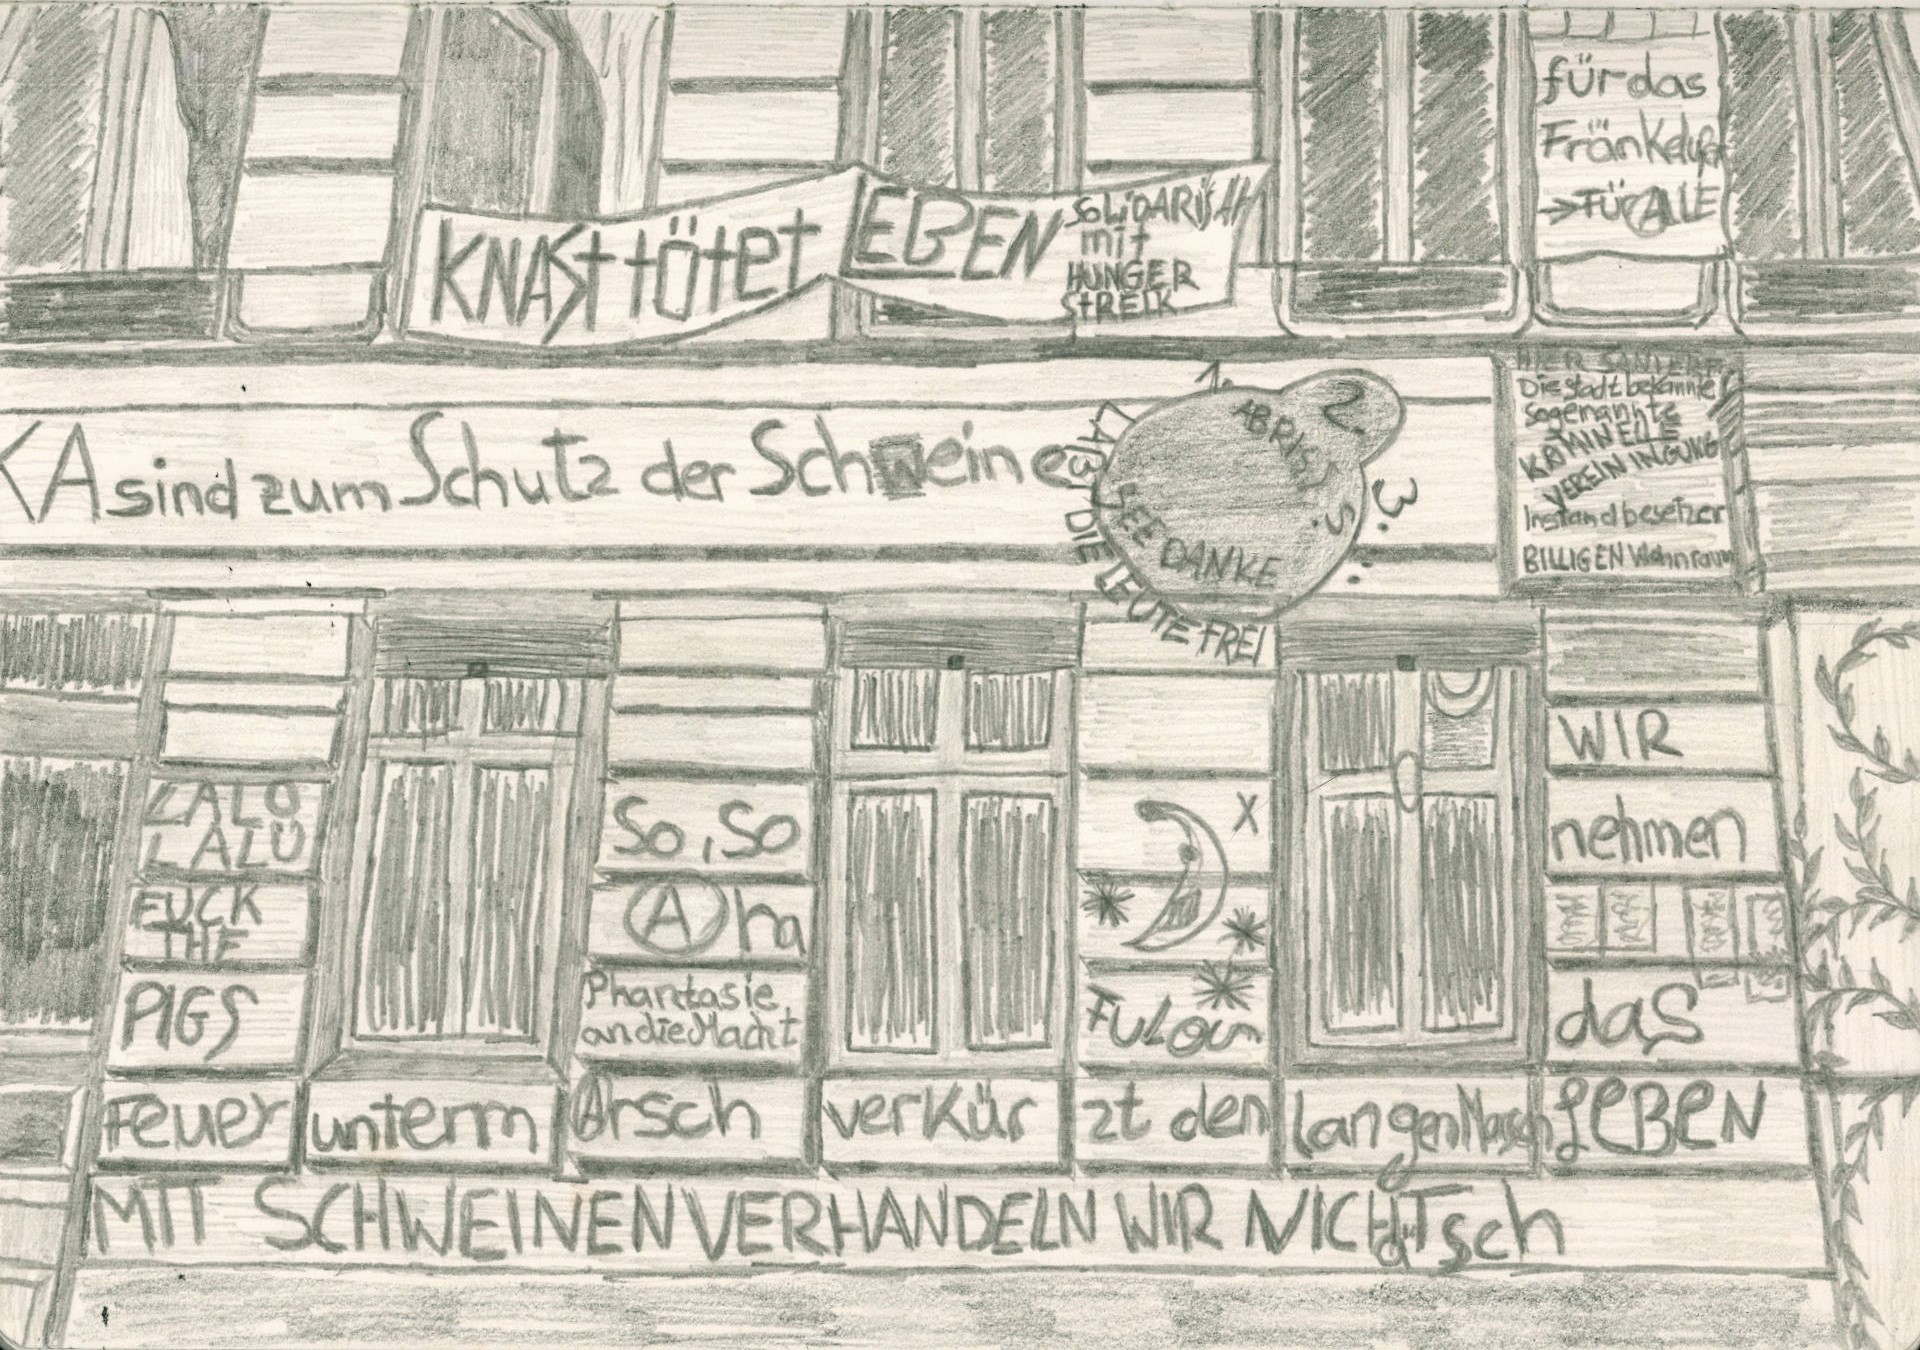 für das
Fränkelufer
→ FÜR ALLE
KNAST tötet
LEBEN
SOLIDARISCH
mit
HUNGER
STREIK
KA sind zum Schutz der Schweine
1.
2.
3.
ABRISS
S.
SEE DANKE
LAẞT DIE LEUTE FREI
HIER SANIERT
Die stadtbekannte
sogenannte
KRIMINELLE
VEREININGUNG
Instandbesetzer
BILLIGEN Wohnraum
LALÜ
LALÜ
FUCK
THE
PIGS
So, So
Aha
Phantasie
an die Macht
X
WIR
nehmen
das
Feuer unterm Arsch verkürzt den langen Marsch LEBEN
MIT SCHWEINEN VERHANDELN WIR NICHT